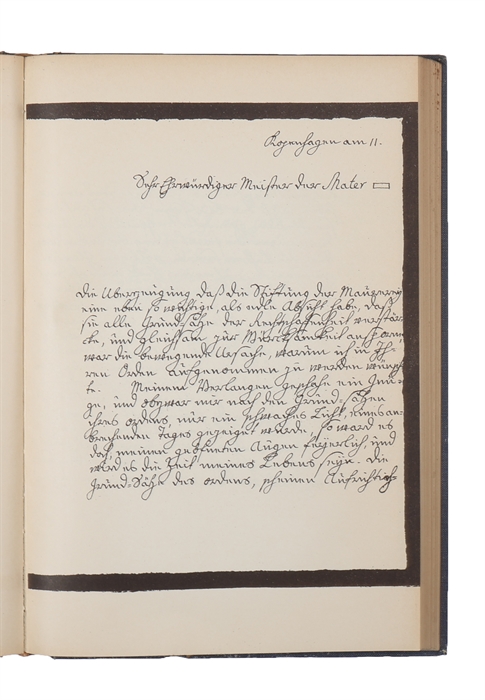 Kopenhagen am 11.
Sehr Ehrwürdiger Meister der Mater
Die Uberzeugung daß die Stiftung der Maürerey
eine eben so wichtige, als edle Absicht habe, daß
sie alle Gründsätze der Rechtschafenheit verstär-
cke, und gleichsam zür Würcksamkeit ansporne,
war die bewegende Ursache, warüm ich in Ih-
ren Orden aufgenommen zu werden wünsch-
te. Meinem Verlangen geschahe ein Genü-
ge, und obgwar mir nach den Gründ-Sätzen
ihres ordens, nür ein schwaches Licht, eines an-
brechenden tages gezeiget wurde, so ward es
doch meinen geöfneten Augen feyerlich, und
wird es die Zeit meines Lebens seyn. Die
Gründ-Sätze des ordens, scheinen Aufrichtig-